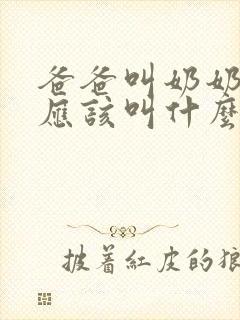 爸爸叫奶奶
應該叫什麼
披着紅皮的狼